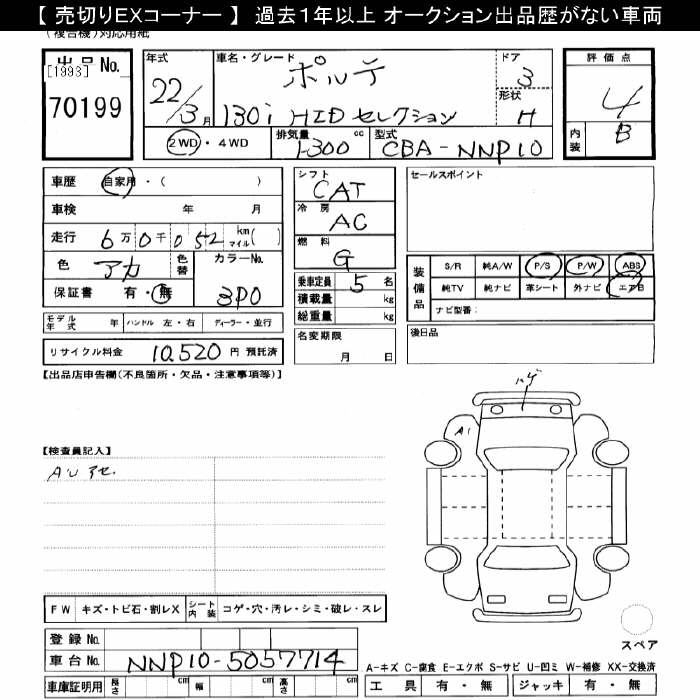 【 売切りEXコーナー 】 過去１年以上 オークション出品歴がない車両
(複合機)対応用紙
出品No.
[1993]
70199
年式
22/3月
車名・グレード
ポルテ
130i HIDセレクション
ドア
3
形状
H
評価点
4
内装
B
2WD・4WD
排気量
1300 cc
型式
CBA-NNP10
車歴 自家用・( )
車検 年 月
走行 6万0千052 km マイル( )
色 アカ
色替
カラーNo.
3P0
保証書 有・無
モデル年式 年 ハンドル 左・右 ディーラー・並行
リサイクル料金 10,520 円 預託済
シフト
CAT
冷房
AC
燃料
G
乗車定員 5 名
積載量 kg
総重量 kg
名変期限
月 日
セールスポイント
装備品
S/R 純A/W P/S P/W ABS
純TV 純ナビ 革シート 外ナビ エアB
ナビ型番:
後日品
【出品店申告欄(不良箇所・欠品・注意事項等)】
ハゲ
A1
【検査員記入】
FW キズ・トビ石・割レX
シート内装 コゲ・穴・汚レ・シミ・破レ・スレ
登録No.
車台No. NNP10-5057714
車庫証明用 長さ cm 幅 cm 高さ cm
スペア
A-キズ C-腐食 E-エクボ S-サビ U-凹ミ W-補修 XX-交換済
工具 有・無 ジャッキ 有・無